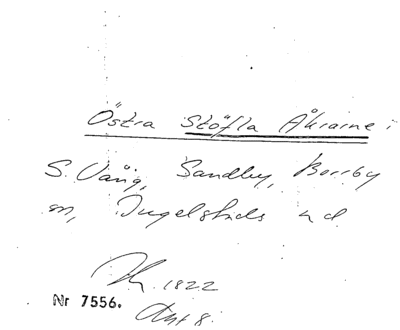 Östra Stöfla Åkrarne i
S. Vång, Sandby, Borrby
sn, Ingelstads hd
1822
Nr 7556.
Akt 8.